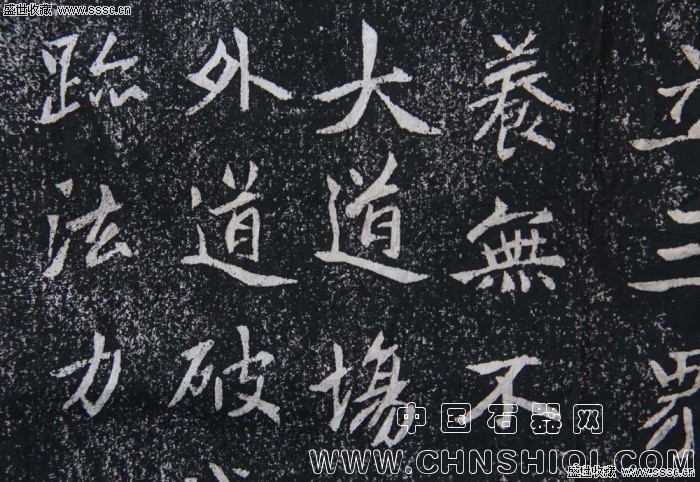 盛世收藏 www.sssc.cn
盛世收藏 www.sssc.cn
三界
養無不
大道場
外道破
法力
中国石器网
WWW.CHNSHIQI.COM
盛世收藏 www.sssc.cn